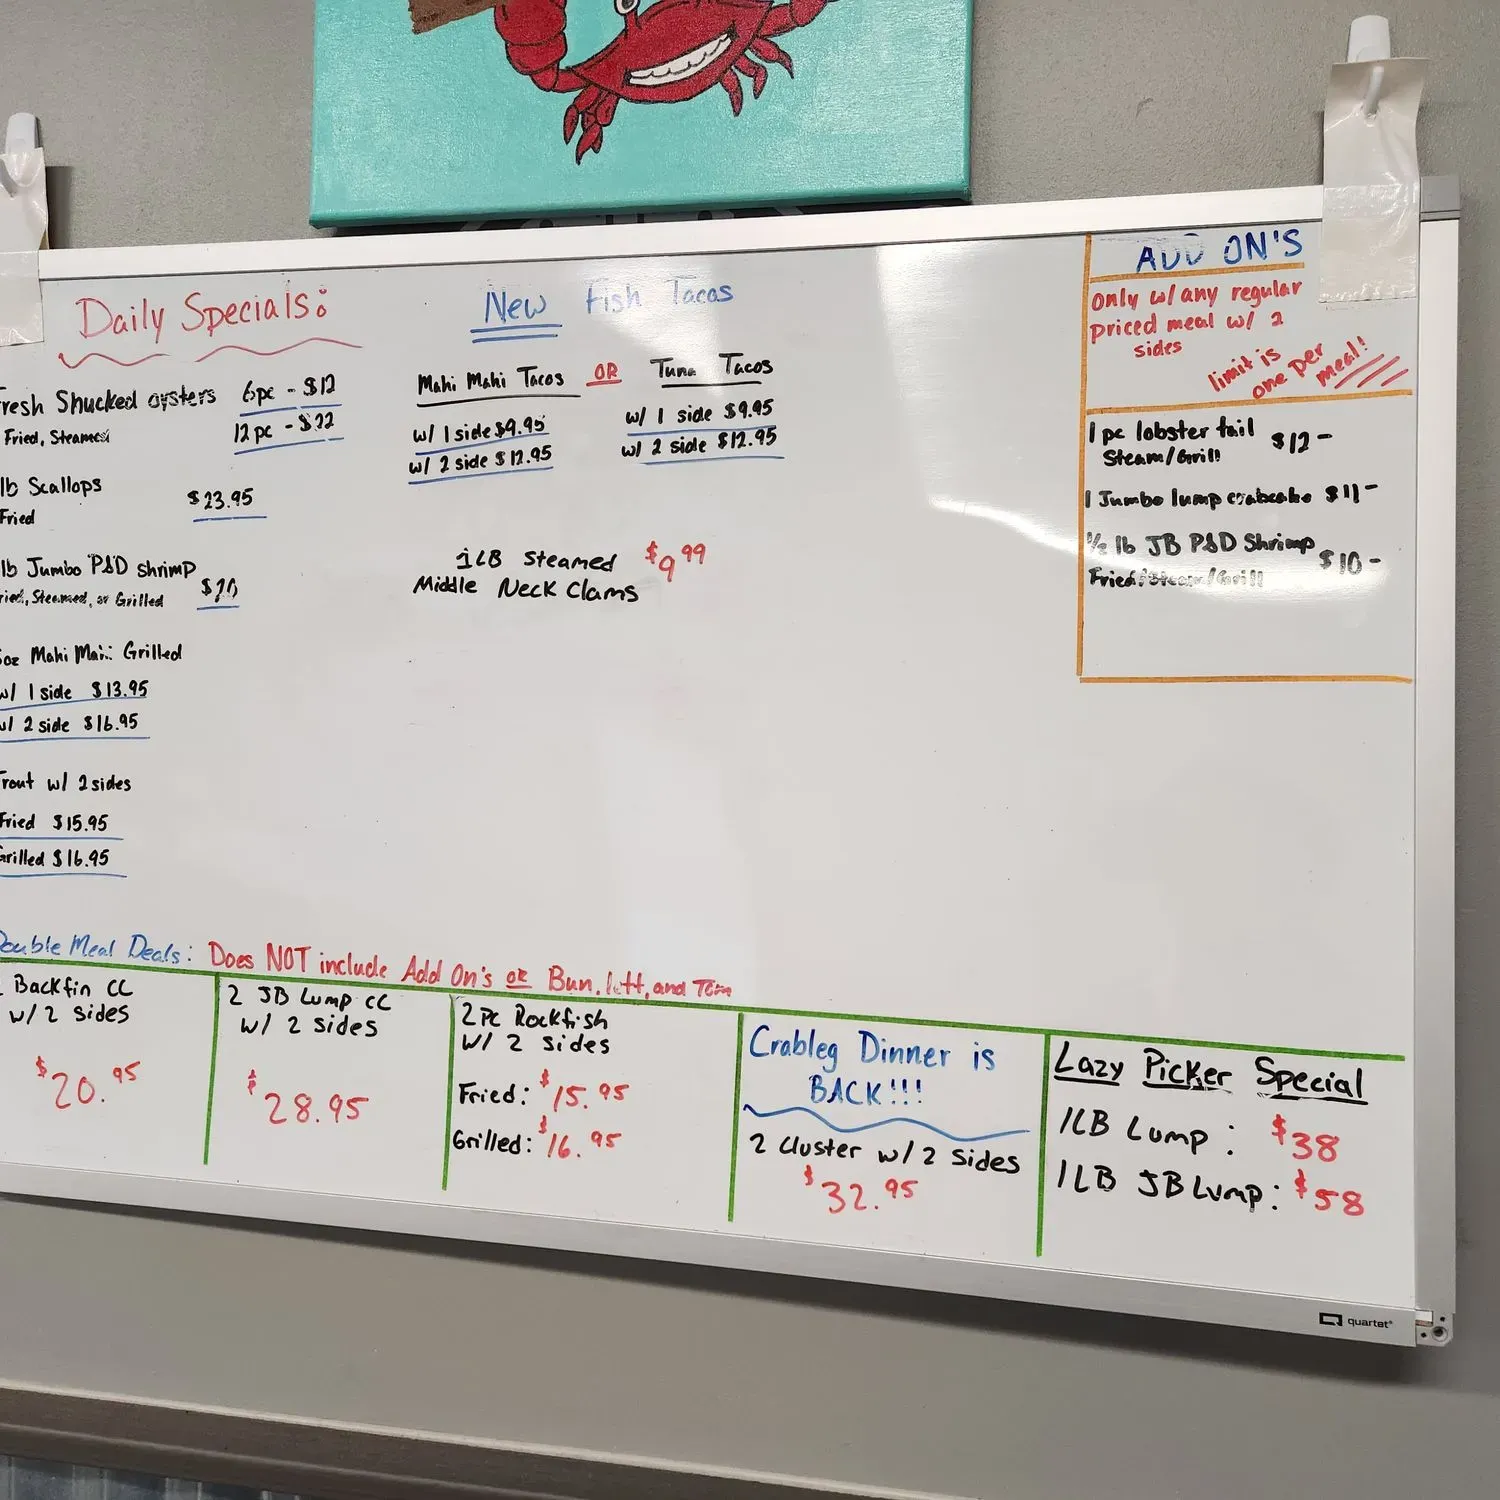 Daily Specials:
resh Shucked oysters 6pc - $12
Fried, Steamed 12 pc - $22
lb Scallops $23.95
Fried
lb Jumbo P&D shrimp $20
ried, Steamed, or Grilled
oz Mahi Mahi Grilled
w/ 1 side $13.95
w/ 2 side $16.95
rout w/ 2 sides
Fried $15.95
Grilled $16.95
New Fish Tacos
Mahi Mahi Tacos OR Tuna Tacos
w/ 1 side $9.95 w/ 1 side $9.95
w/ 2 side $12.95 w/ 2 side $12.95
1LB Steamed $9.99
Middle Neck Clams
ADD ON'S
only w/ any regular
priced meal w/ 2
sides
limit is
one per
meal!
1 pc lobster tail $12-
Steam/Grill
1 Jumbo lump crabcake $11-
1/2 lb JB P&D Shrimp $10-
Fried/Steam/Grill
Double Meal Deals: Does NOT include Add On's or Bun, lett, and Tom
Backfin CC
w/ 2 sides
$20.95
2 JB Lump CC
w/ 2 sides
$28.95
2Pc Rockfish
w/ 2 sides
Fried: $15.95
Grilled: $16.95
Crableg Dinner is
BACK!!!
2 Cluster w/ 2 sides
$32.95
Lazy Picker Special
1LB Lump: $38
1LB JB Lump: $58
quartet